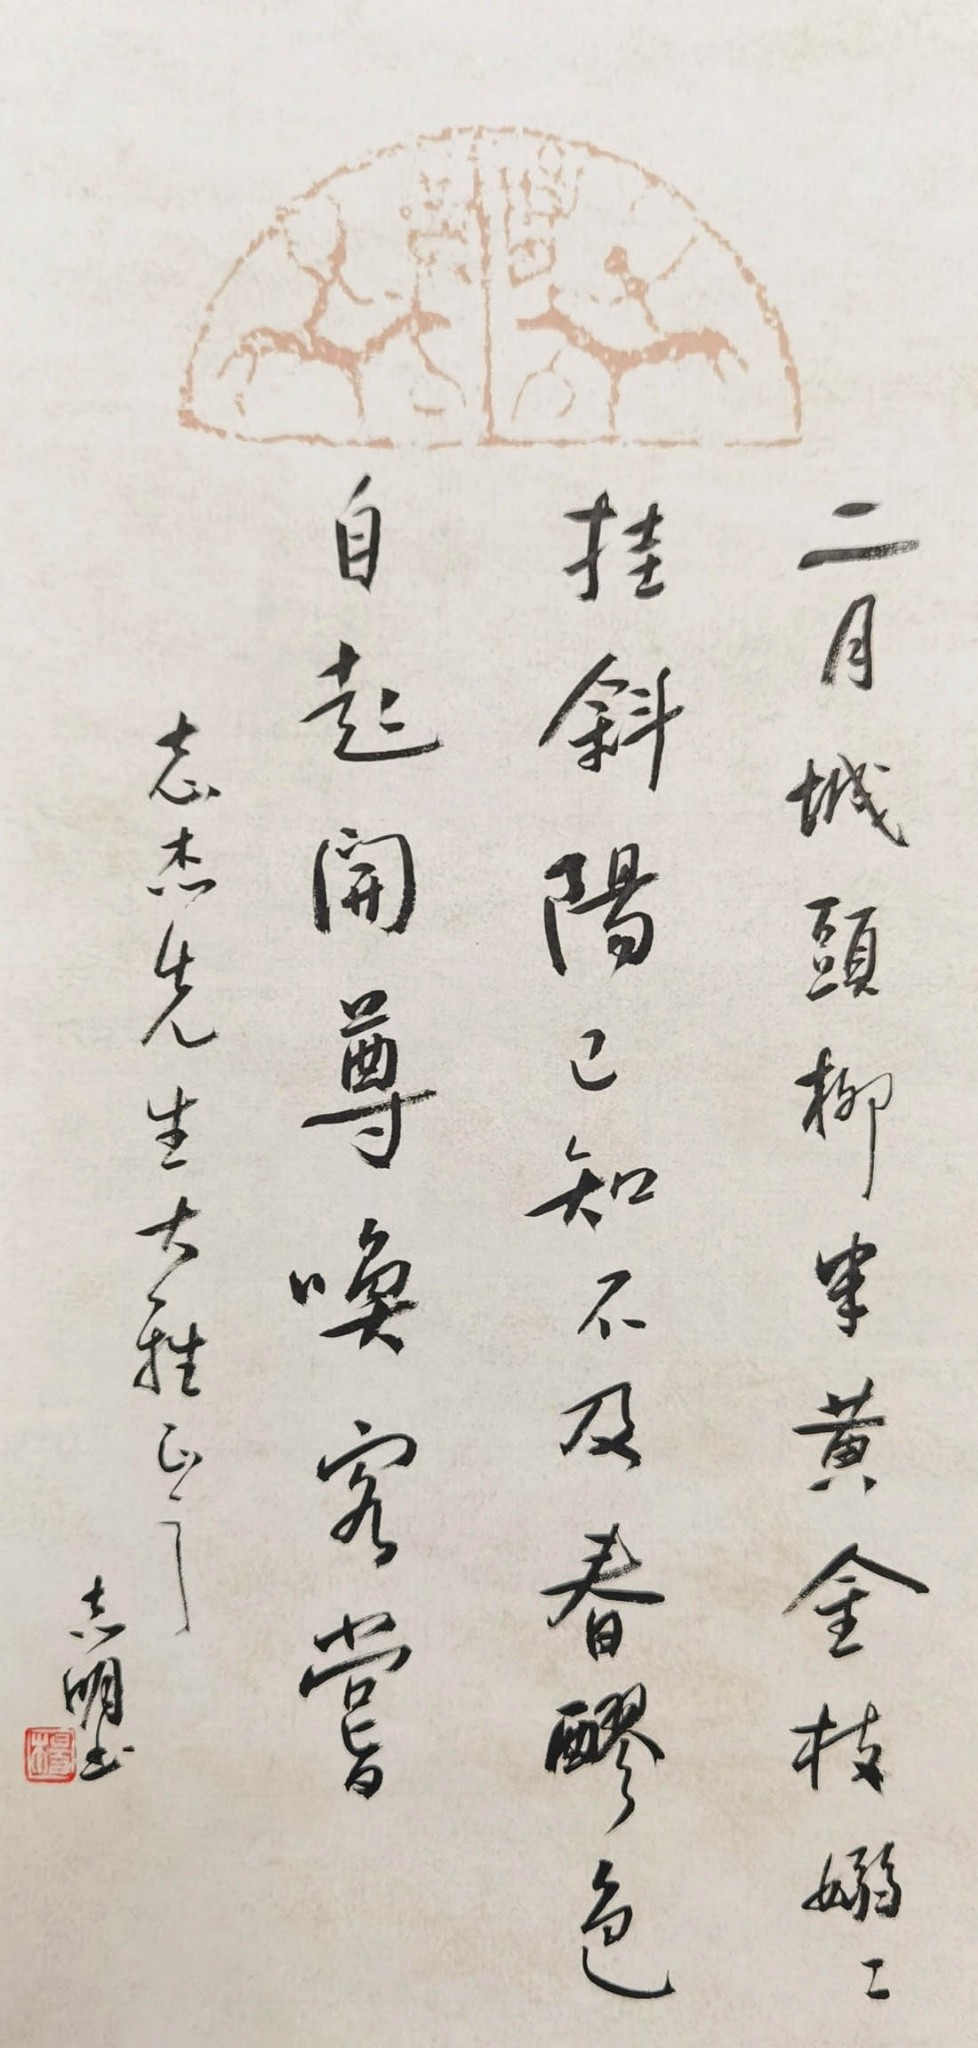 二月城頭柳半黄金枝嫋〻
挂斜陽已知不及春醪色
自起開尊喚客嘗
志杰先生大雅正之
志明书
楊